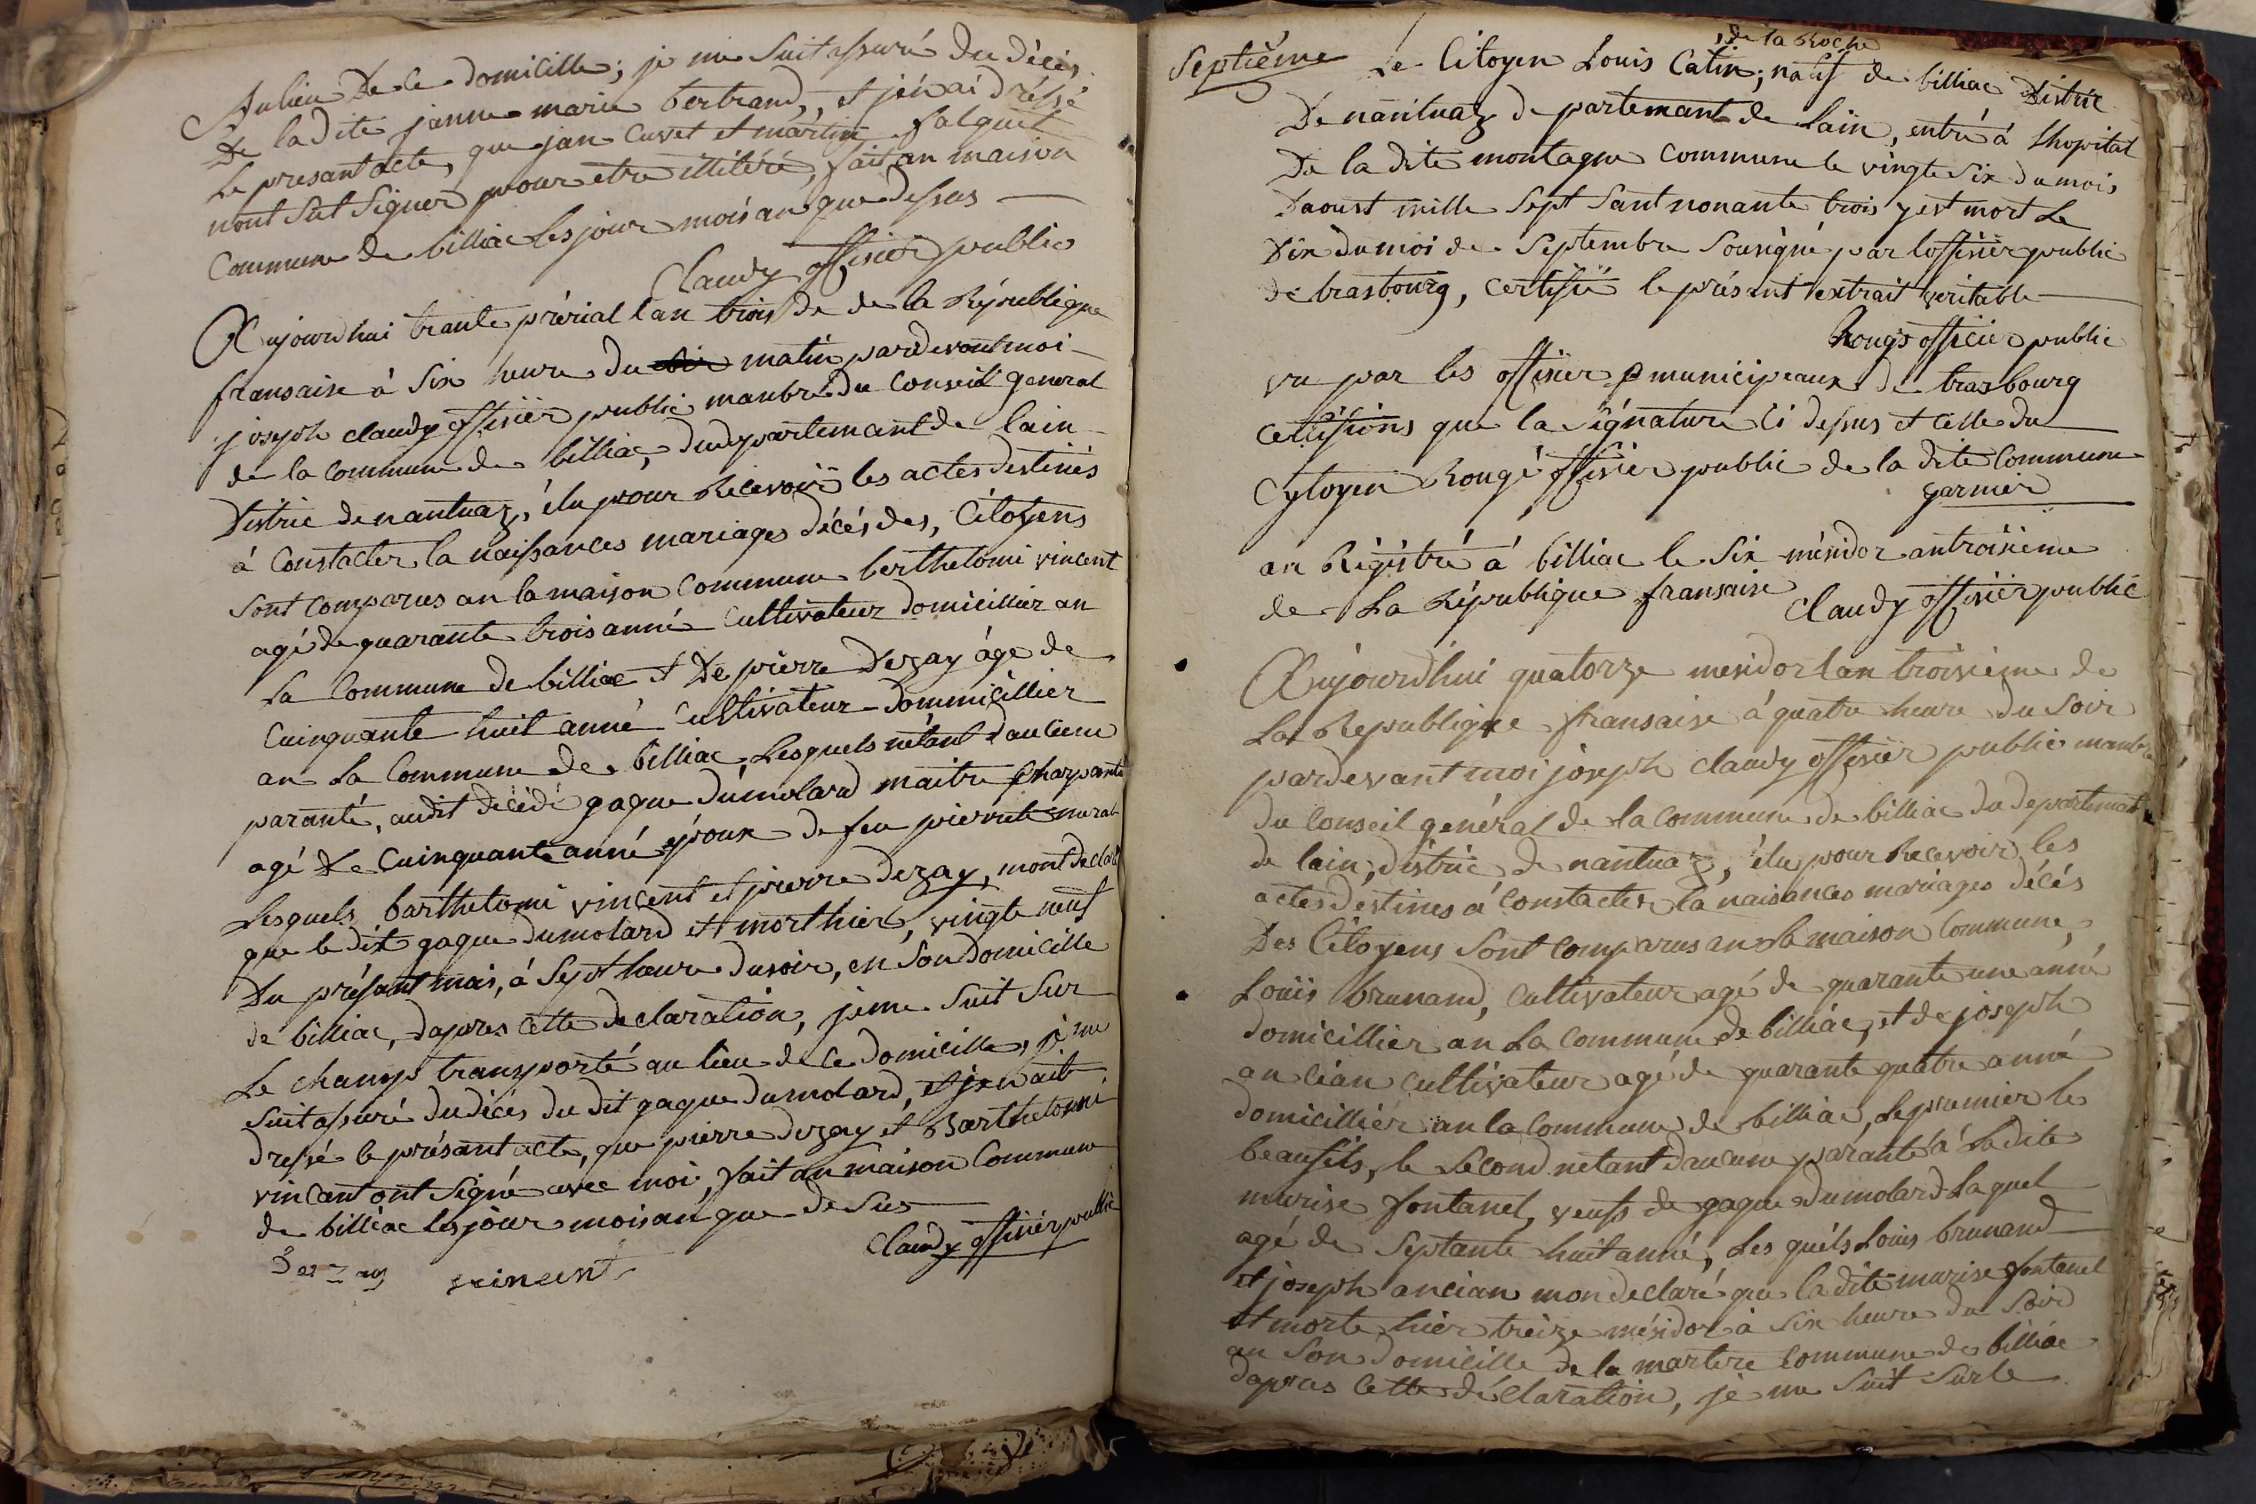 Aulieu De ce domicille; je me Suit assuré du décès
De la dite janne marie bertrand, et j'en ai dréssé
Le presant acte, que jan Cuvet et martin falquet
nont Sut Signer pour etre illitéré, fait an maison
Commune de billiac les jour mois an que dessus
Claudy offisier public
Aujourdhui trante prérial l'an trois de de la République
fransaise à Six heure du matin pardevant moi
joseph claudy offisiér public manbre du Conseil general
de la commune de billiac, du departemant de lain
Distric de nantuaz, élu pour Recevoir les actes destinés
à Constacter la naissances mariages décés des, Citoyens
Sont comparus an la maison Commune berthelomi vincent
agé de quarante trois anné Cultivateur domicillier an
La Commune de billiac et De pierre Dezay áge de
Cuinquante huit anné Cultivateur Dommicillier
an La Commune de billiac, Lesquels nétant daucune
paranté, audit décédé gaque dumolard maitre charpante
agé De Cuinquante anné époux de feu pierrete murat
Lesquels barthelomi vincent et pierre dezay, mont declaré
que le dit gaque dumolard et mort hier, vingte neuf
Du présant mois, à Sept heure du soir, en Son Domicille
de billiac, dapres cette declaration, je me Suit Sur
Le champ transporté au lieu de ce domicille, je me
Suit assuré du décés du dit gaque dumolard, et jen ait
dressé le présant acte, que pierre dezay et Barthelomi
vincant ont Signé avec moi, fait an maison Commune
de billiac les jour mois an que desus
Claudy offisiér public
Dezay vincent
de la Roche
Septiéme Le Citoyen Louis Catin; natif de billiac Distric
De nantuaz departemant de Lain, entré à Lhopital
De la dite montagne Commune le vingte Six du mois
Daoust mille Sept Sant nonante trois y est mort Le
Dix du moi de Septembre Sousigné par loffisiér public
de trasbourg, certifié le présant extrait veritable
Rougé officier public
vu par les offisier municipeaux de trasbourg
certifions que la Signature Ci dessus et Celle du
Cytoyen Rougé offisier public de la dite Commune
garnier
an Régistré à billiac le Six mésidor an troisieme
de La République fransaise Claudy offisiér public
Aujourdhui quatorze mesidor lan troisieme de
La Republique fransaise à quatre heure du Soir
pardevant moi joseph claudy offisiér public manbre
du Conseil genéral de la commune de billiac du departemant
de lain, distric de nantuaz, élu pour Recevoir les
actes destines á Constacter la naisances mariages décés
Des Citoyens Sont comparus an La maison Commune,
Louis brunand, Cultivateur agé de quarante une anné
domicillier an La Commune de billiac, et de joseph
ancian cultivateur agé de quarante quatre anné
domicillier an la Commune de billiac, Le premier le
beaufils, le Second nétant daucune paranté à Ladite
murise fontanel, veuss de gaque dumolard Laquel
agé de Septante huit anné, Les quéls Louis brunand
et joseph ancian mon declaré que la dite murise fontanel
et morte, hièr treize mésidor à Six heure du Soir
an Son domicille de la martere Commune de billiac
dapres Cette déclaration, je me Suit Sur le